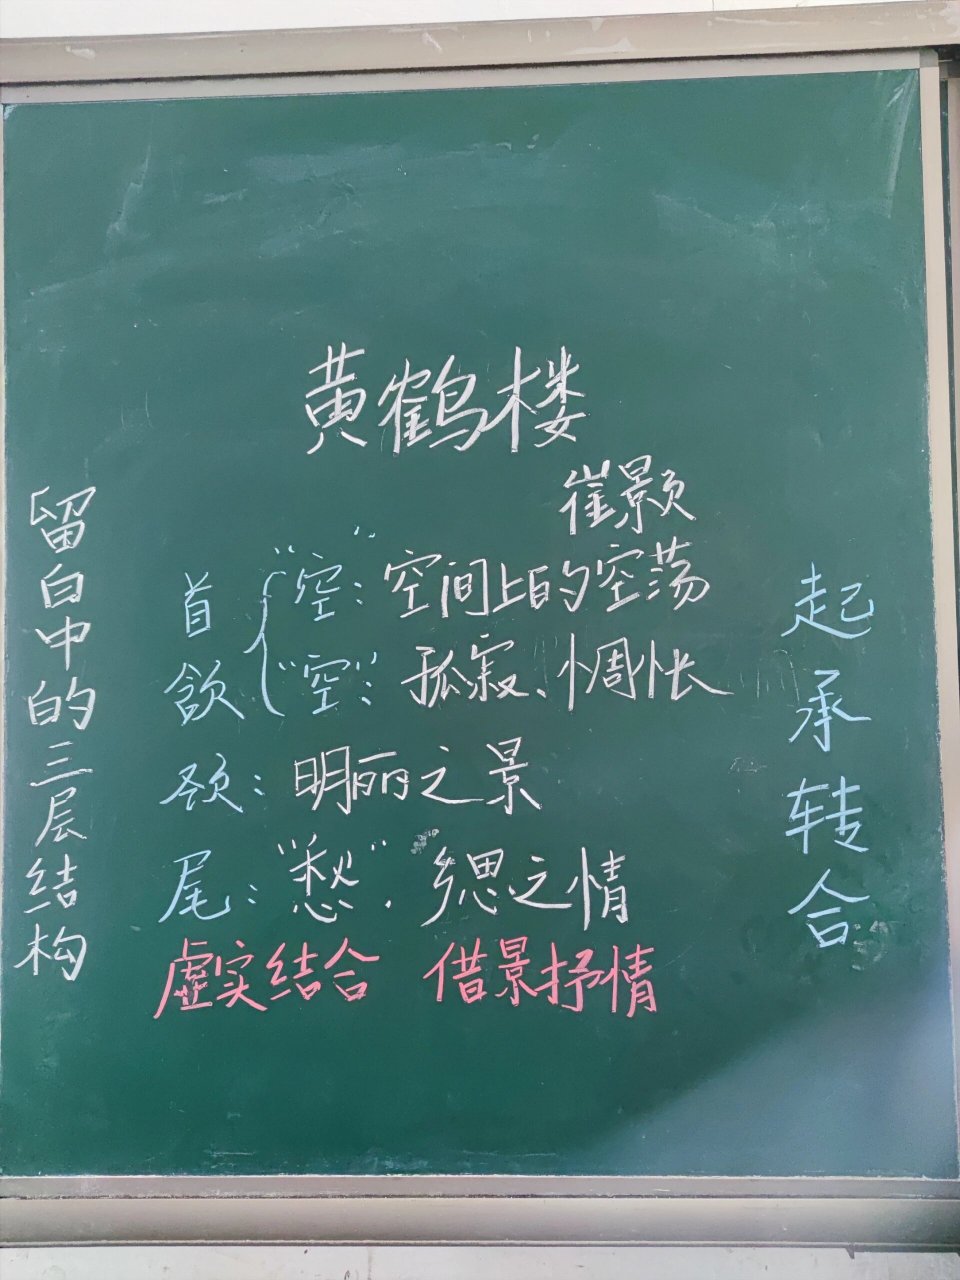 黄鹤楼
崔颢
留白中的三层结构
首 "空"：空间上的空荡
颔 "空"：孤寂、惆怅
颈：明丽之景
尾："愁"，乡思之情
虚实结合 借景抒情
起承转合